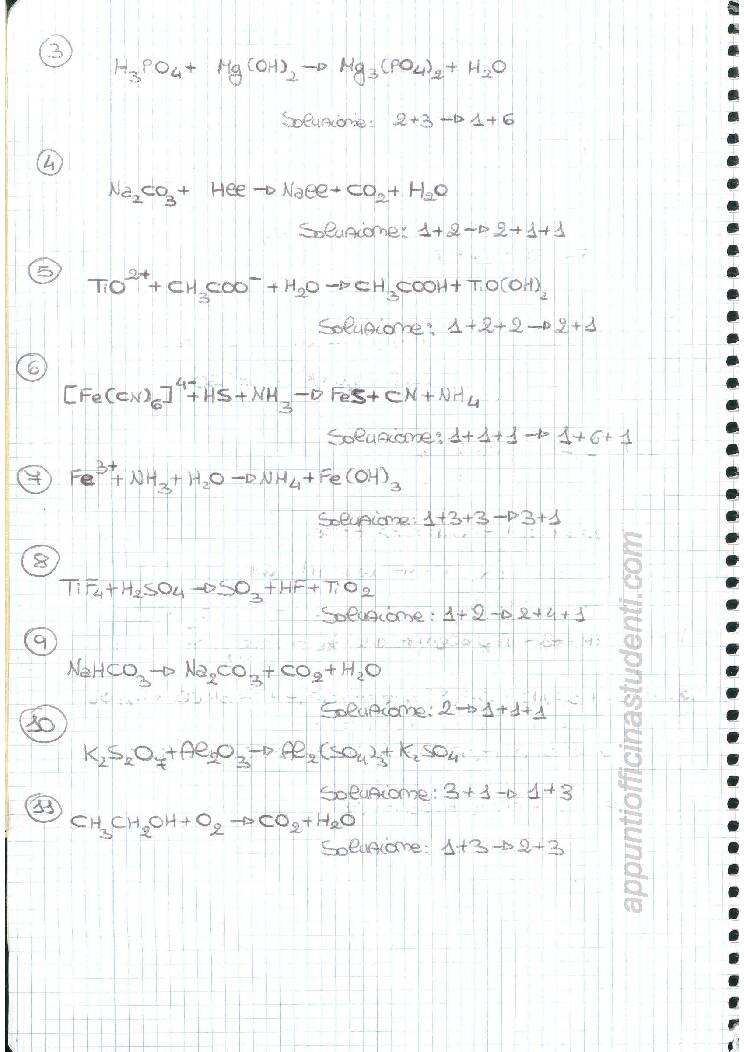 3
H₃PO₄ + Mg(OH)₂ → Mg₃(PO₄)₂ + H₂O
Soluzione: 2+3 → 1+6
4
Na₂CO₃ + HCl → NaCl + CO₂ + H₂O
Soluzione: 1+2 → 2+1+1
5
TiO²⁺ + CH₃COO⁻ + H₂O → CH₃COOH + TiO(OH)₂
Soluzione: 1+2+2 → 2+1
6
[Fe(CN)₆]⁴⁻ + HS + NH₃ → FeS + CN + NH₄
Soluzione: 1+1+1 → 1+6+1
7
Fe³⁺ + NH₃ + H₂O → NH₄ + Fe(OH)₃
Soluzione: 1+3+3 → 3+1
8
TiF₄ + H₂SO₄ → SO₃ + HF + TiO₂
Soluzione: 1+2 → 2+4+1
9
NaHCO₃ → Na₂CO₃ + CO₂ + H₂O
Soluzione: 2 → 1+1+1
10
K₂S₂O₇ + Al₂O₃ → Al₂(SO₄)₃ + K₂SO₄
Soluzione: 3+1 → 1+3
11
CH₃CH₂OH + O₂ → CO₂ + H₂O
Soluzione: 1+3 → 2+3
appuntiofficinastudenti.com